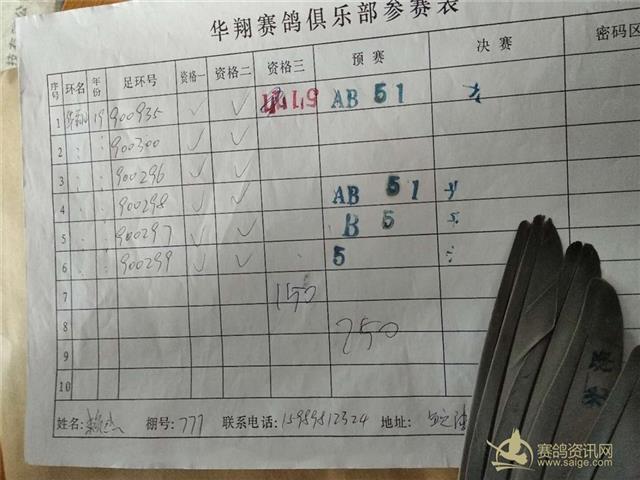 华翔赛鸽俱乐部参赛表
序号 环名 年份 足环号 资格一 资格二 资格三 预赛 决赛 密码区
1 19 900935 ✓ ✓ AB 51
2 900300 ✓ ✓
3 900296 ✓ ✓
4 900298 ✓ ✓ AB 51
5 900297 ✓ ✓ B 5
6 900299 ✓ ✓ 5
7 150
8 250
9
10
姓名: 棚号: 777 联系电话: 15959512324 地址:
赛鸽资讯网
www.saige.com